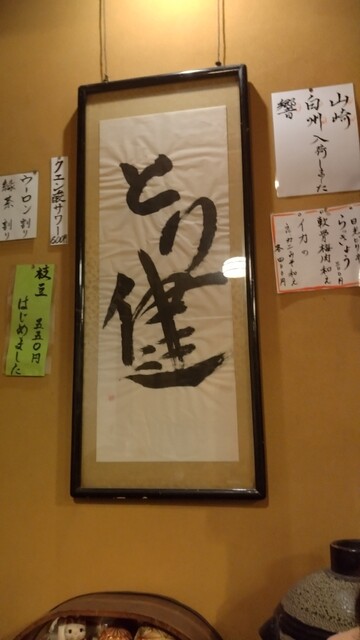 とり健
山崎
白州 入荷しました
響
クエン酸サワー
ウーロン割り
緑茶割り
枝豆 五五〇円
はじめました
らっきょう
軟骨梅肉和え
イカの